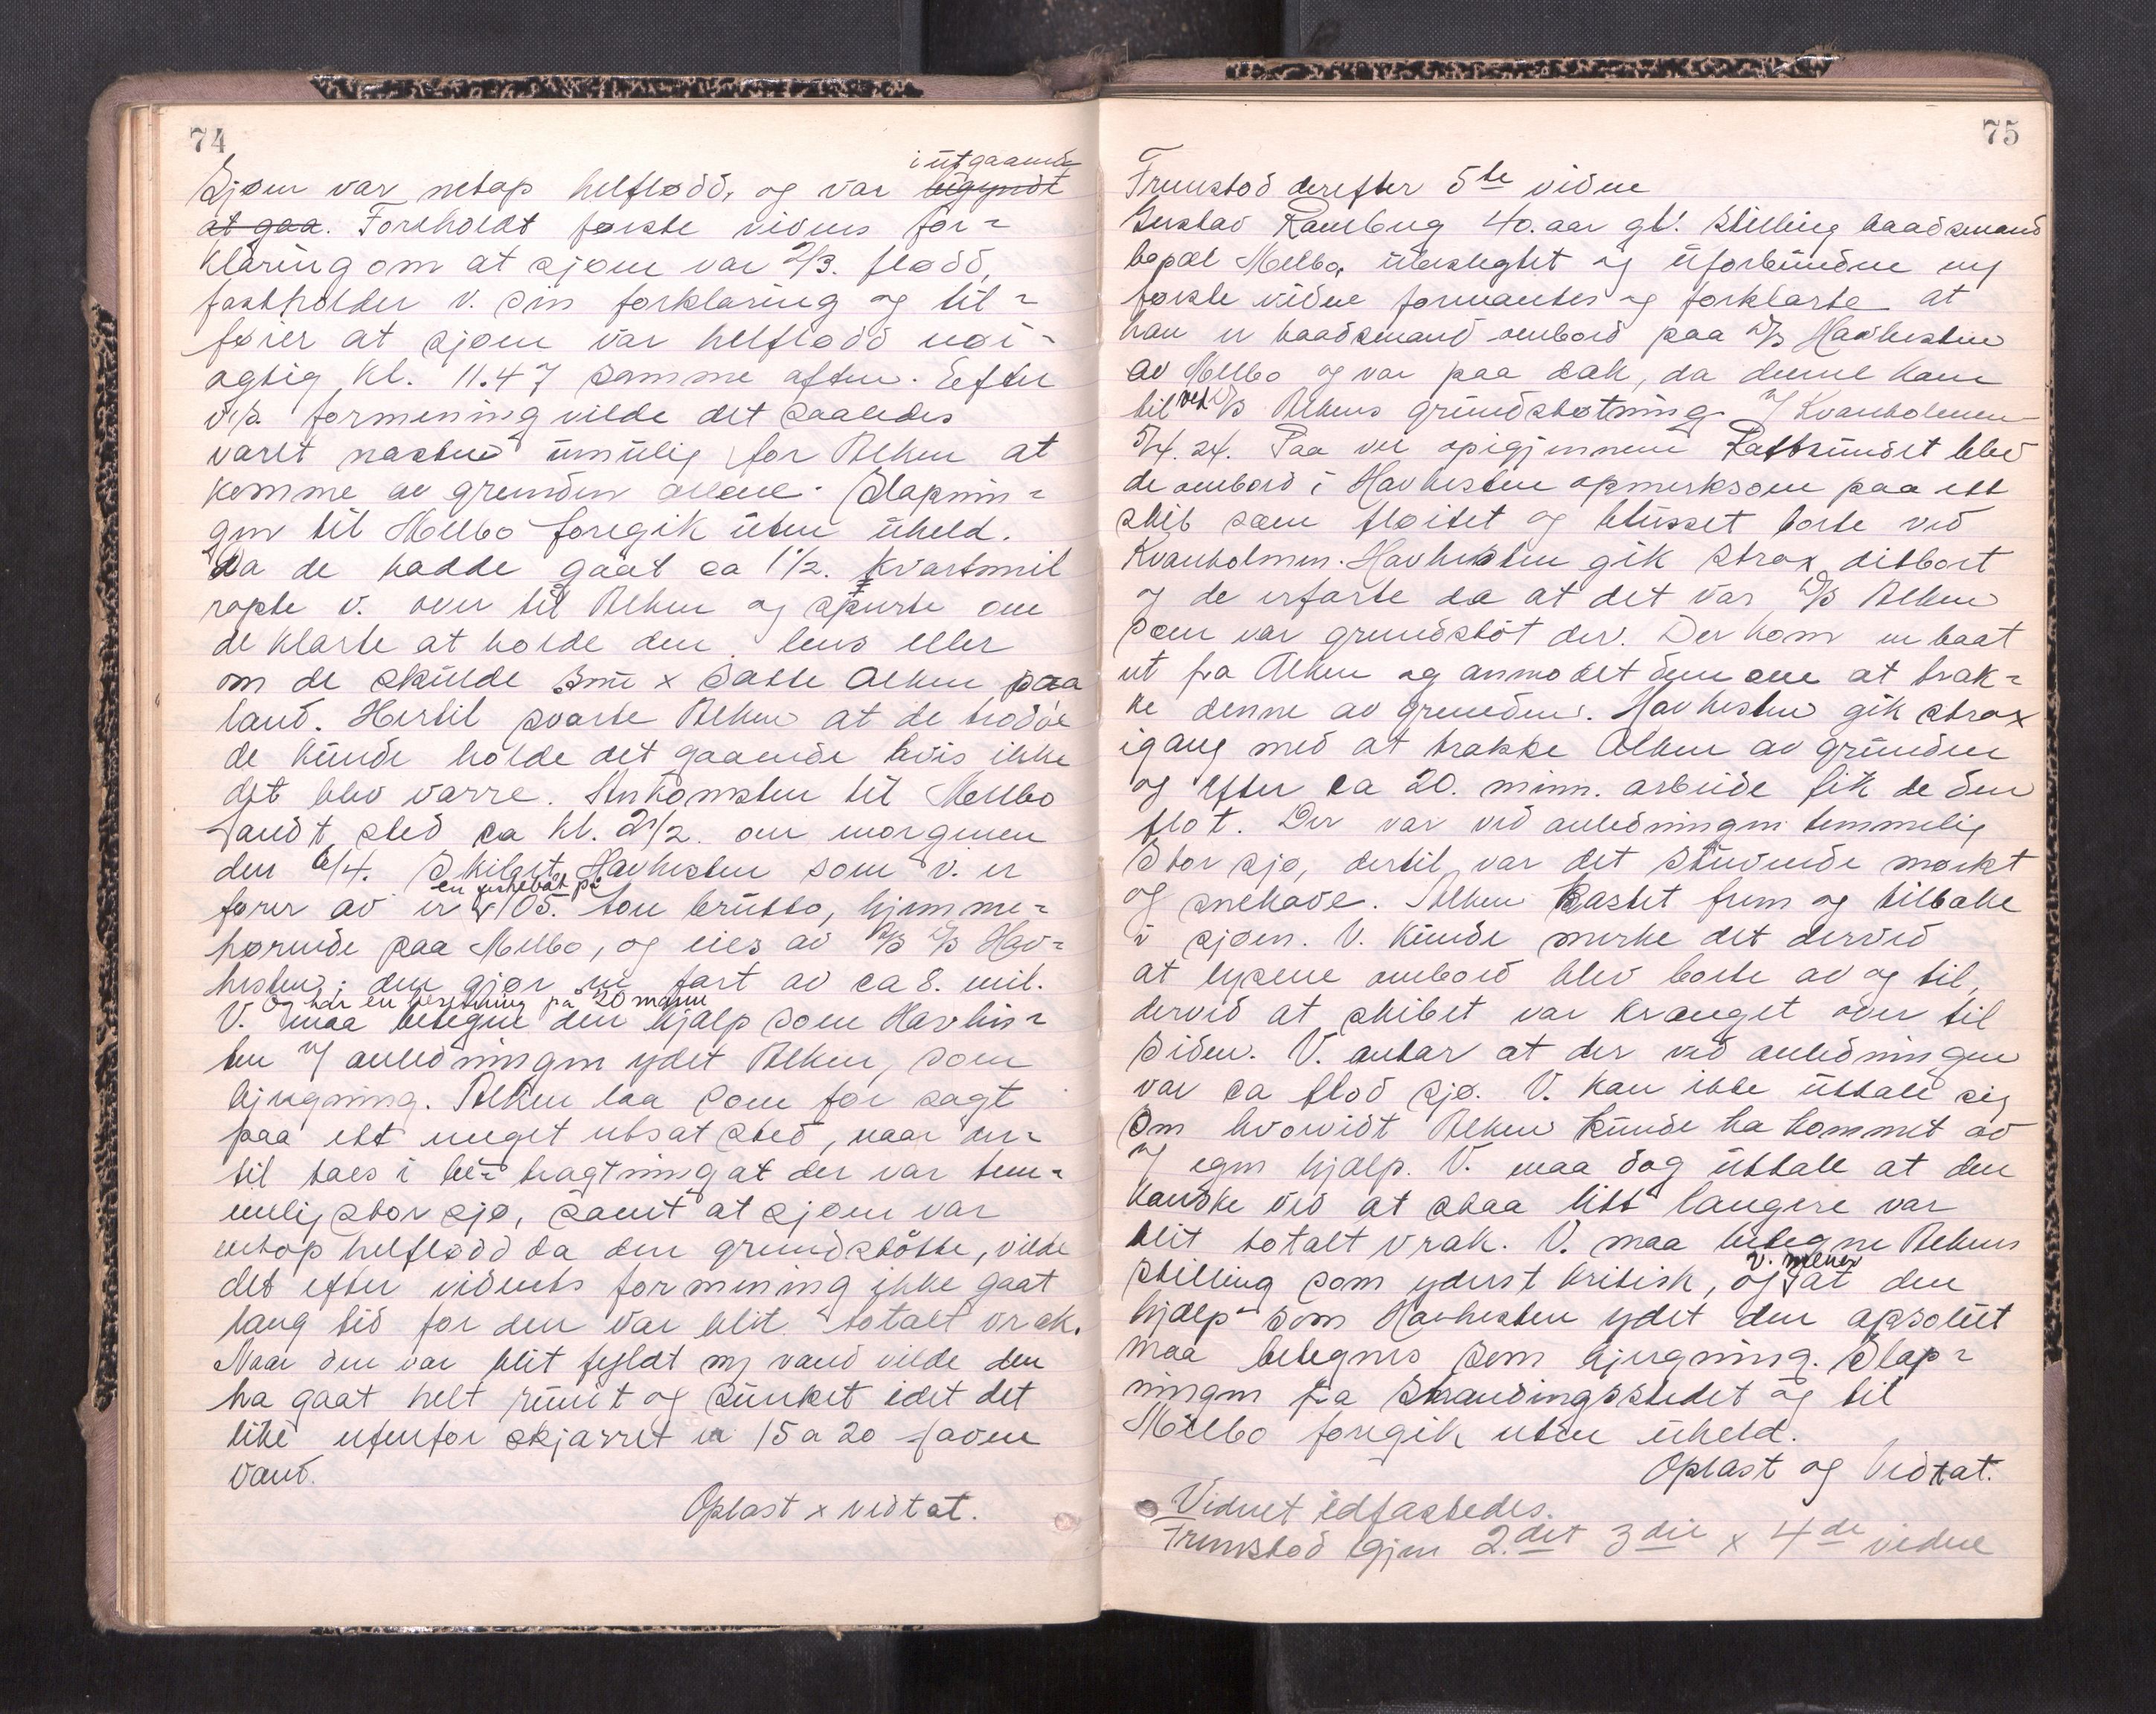 74
i utgaaende
Sjøen var netop helflødd, og var begyndt
at gaa. Foreholdt første vidnes for=
klaring om at sjøen var 2/3. flødd,
fastholder v. sin forklaring og til=
føier at sjøen var helflødd nøi=
agtig kl. 11.47 samme aften. Efter
v/s. formening vilde det saaledes
varet næsten umulig for Alken at
komme av grunden allene. Slæpnin=
gen til Melbo foregik uten uheld.
Da de hadde gaat ca 1 1/2. kvartmil
ropte v. over til Alken og spurte om
de klarte at holde den lens eller
om de skulde snu x sætte Alken paa
land. Hertil svarte Alken at de trodde
de kunde holde det gaaende hvis ikke
det blev værre. Ankomsten til Melbo
fandt sted ca kl. 2 1/2. om morgenen
den 6/4. Skibet Havhesten som v. er
en fiskebåt på
fører av er 105. ton brutto, hjemme=
hørende paa Melbo, og eies av A/S D/S Hav=
hesten; den gjør en fart av ca 8. mil.
og har en besetning på 20 mann
V. maa betegne den hjælp som Havhes=
ten v/ anledningen ydet Alken, som
bjergning. Alken laa som før sagt
paa ett meget utsat sted, naar der=
til taes i be= tragtning at der var tem=
melig stor sjø, samt at sjøen var
netop helflødd da den grundstøtte, vilde
det efter vidnets formening ikke gaat
lang tid før den var blit totalt vrak.
Naar den var blit fyldt m/ vand vilde den
ha gaat helt rundt og sunket idet det
like utenfor skjærret er 15 a 20 favne
vand.
Oplæst x vedtat.
75
Fremstod derefter 5te vidne
Gustav Ramberg 40. aar gl. Stilling baadsmand
bopæl Melbo, ubeslegtet og uforbunden m/
første vidne formantes og forklarte at
han er baadsmand ombord paa D/S Havhesten
av Melbo og var paa dæk, da denne kom
til ved D/S Alkens grundstøtning v/ Kvanholmen
5/4. 24. Paa vei opigjennem Raftsundet blev
de ombord i Havhesten opmerksom paa ett
skib som fløitet og blusset borte ved
Kvanholmen. Havhesten gik strax ditbort
og de erfarte da at det var D/S Alken
som var grundstøt der. Der kom en baat
ut fra Alken og anmodet dem om at træk=
ke denne av grunden. Havhesten gik strax
igang med at trække Alken av grunden
og efter ca 20. minn. arbeide fik de den
flot. Der var ved anledningen temmelig
stor sjø, dertil var det stuvende mørkt
og snekave. Alken kastet frem og tilbake
i sjøen. V. kunde merke det derved
at lysene ombord blev borte av og til,
derved at skibet var krænget over til
siden. V. antar at der ved anledningen
var ca flod sjø. V. kan ikke uttale sig
om hvorvidt Alken kunde ha kommet av
v/ egen hjælp. V. maa dog uttale at den
kanske ved at staa litt længere var
blit totalt vrak. V. maa betegne Alkens
v. mener
stilling som yderst kritisk, og at den
hjælp som Havhesten ydet den apsolut
maa betegnes som bjergning. Slæp=
ningen fra Strandingsstedet og til
Melbo foregik uten uheld.
Oplæst og Vedtat.
Vidnet edfæstedes.
Fremstod igjen 2.det 3die x 4de vidne